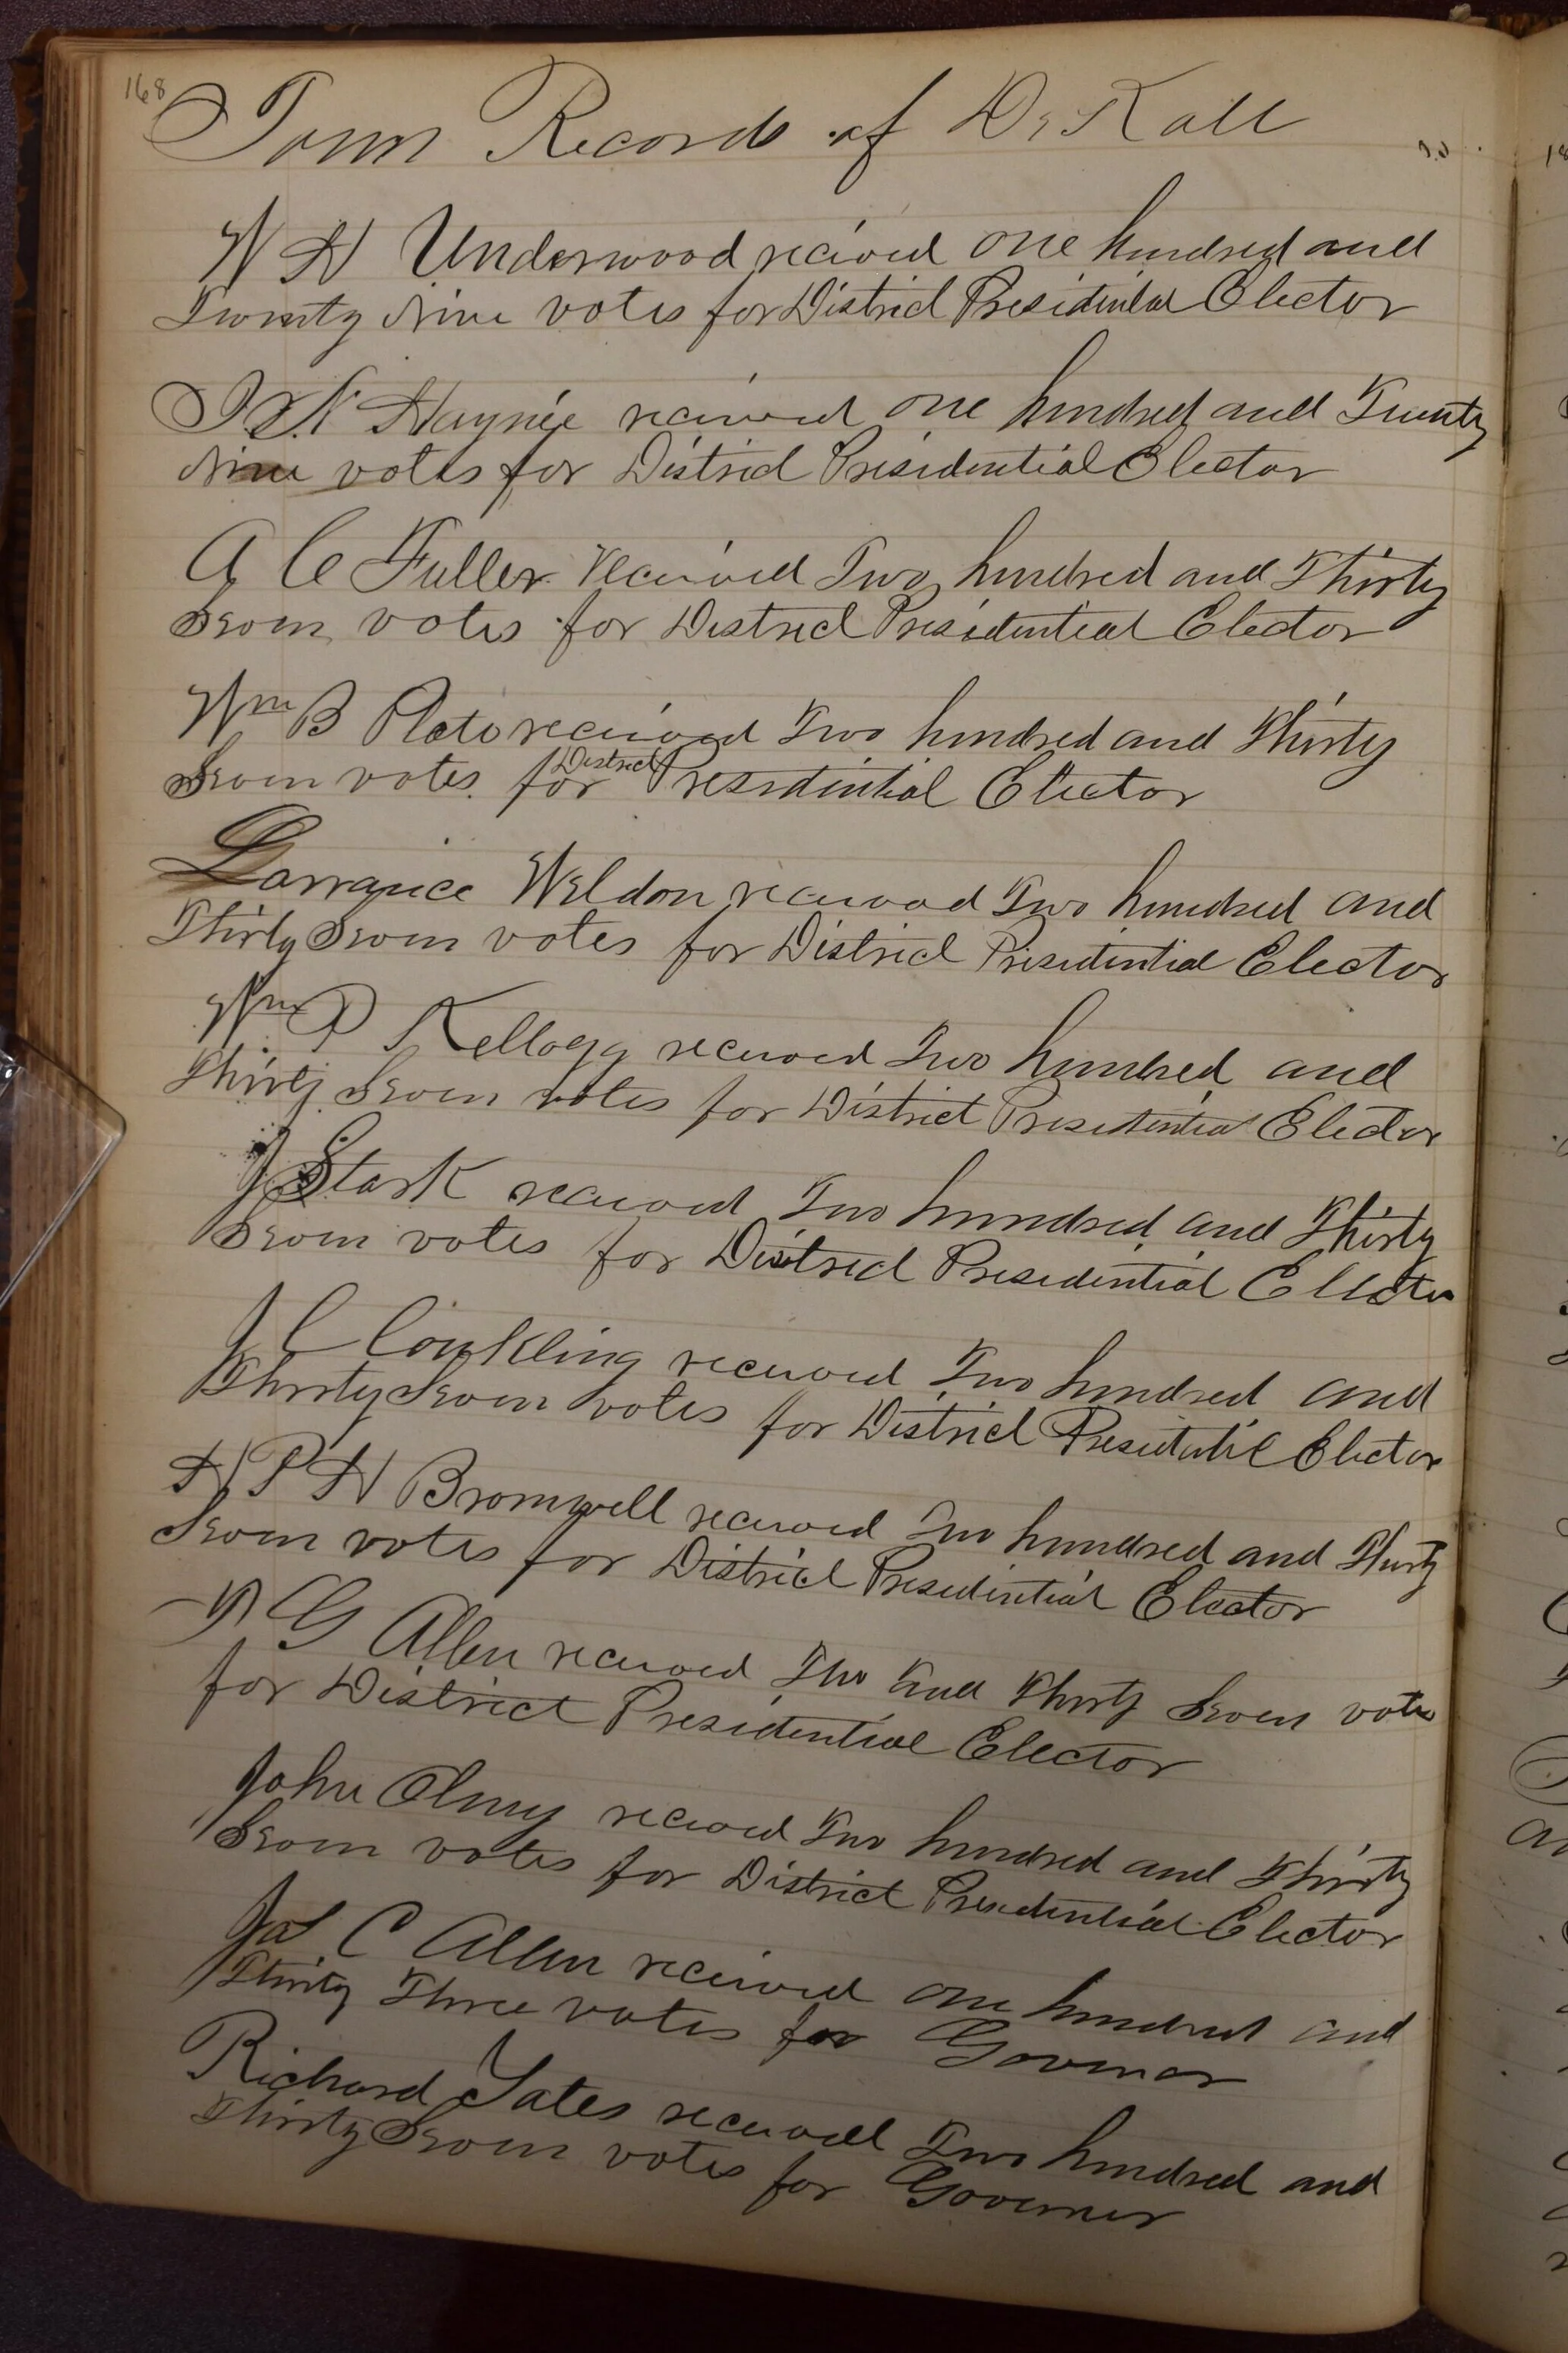 168
Town Records of DeKalb
W H Underwood received one hundred and
Twenty Nine votes for District Presidential Elector
I N Haynie received one hundred and Twenty
Nine votes for District Presidential Elector
A C Fuller Received Two hundred and Thirty
Seven votes for District Presidential Elector
Wm B Plato received Two hundred and Thirty
Seven votes for District Presidential Elector
Larrance Weldon received Two hundred and
Thirty Seven votes for District Presidential Elector
Wm P Kellogg received Two hundred and
Thirty Seven votes for District Presidential Elector
J Stark received Two hundred and Thirty
Seven votes for District Presidential Elector
J C Conkling received Two hundred and
Thirty Seven votes for District Presidential Elector
H P H Bromwell received Two hundred and Thirty
Seven votes for District Presidential Elector
G Allen received Two hund Thirty Seven votes
for District Presidential Elector
John Olney received Two hundred and Thirty
Seven votes for District Presidential Elector
Jas C Allen received one hundred and
Thirty Three votes for Governor
Richard Yates received Two hundred and
Thirty Seven votes for Governor